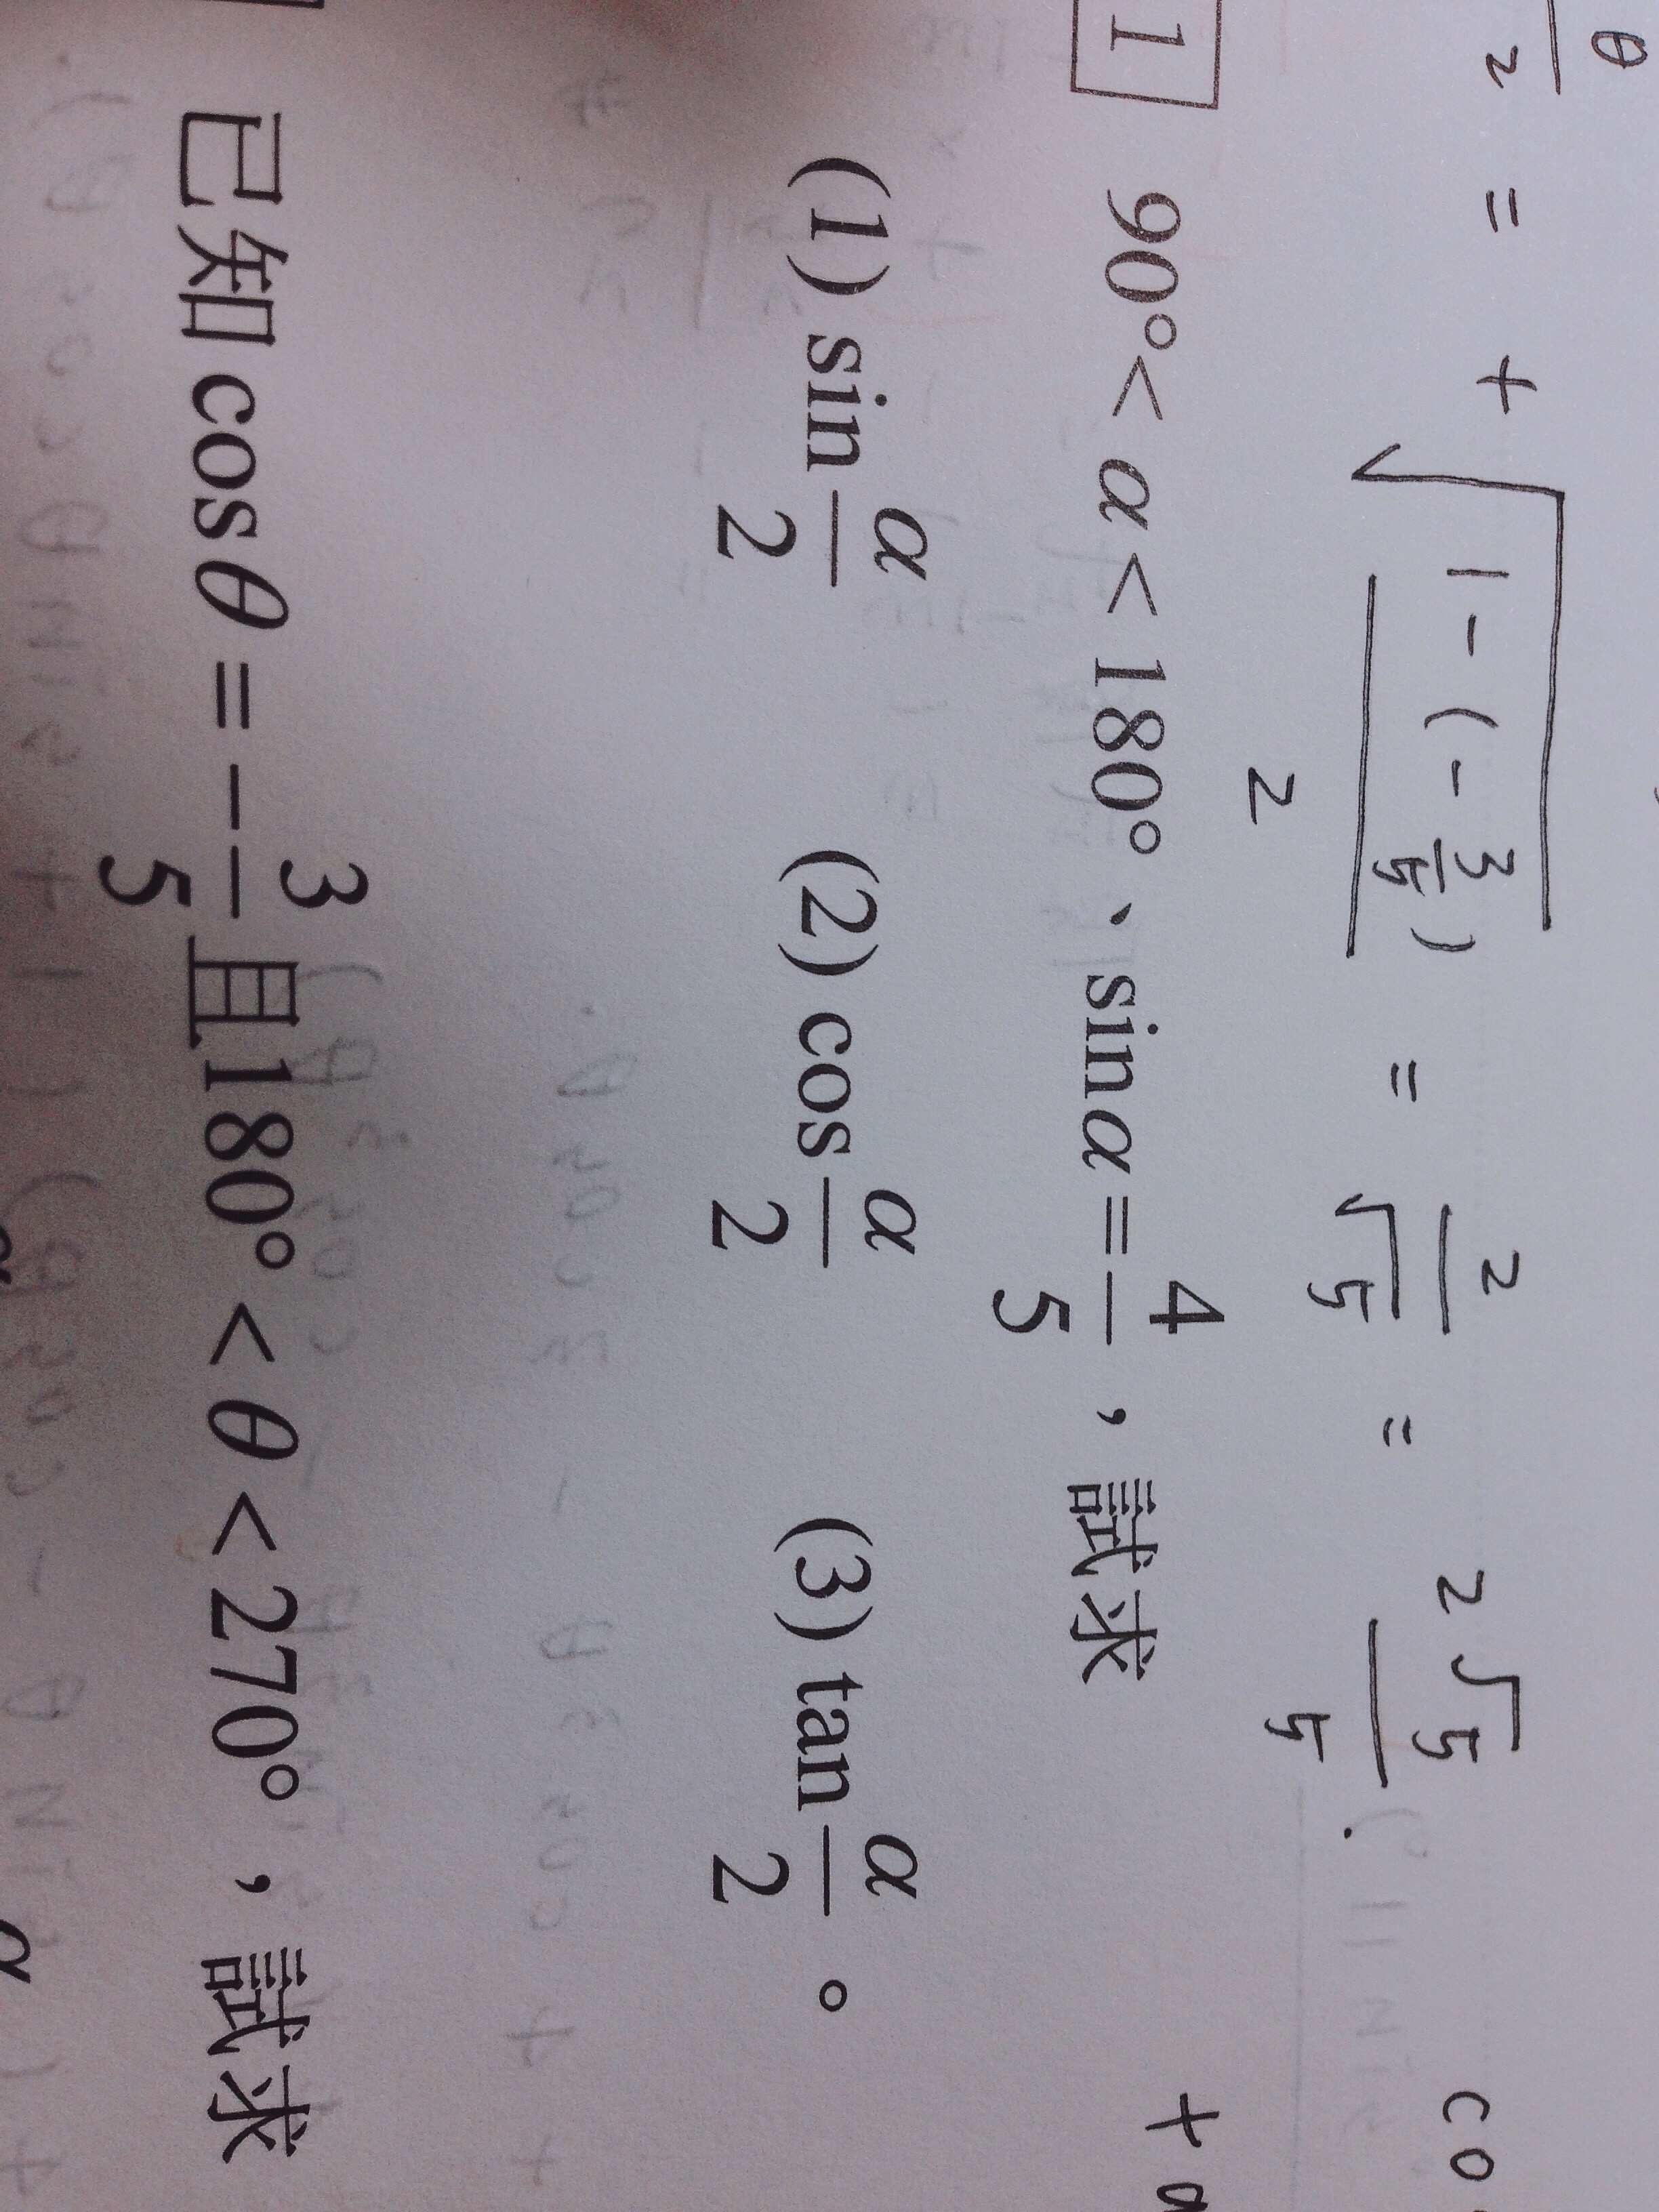 θ/2 = +√((1-(-3/5))/2) = 2/√5 = 2√5/5 . co
+a
1 90°< α < 180°、sinα = 4/5，試求
(1) sin α/2 (2) cos α/2 (3) tan α/2 。
已知 cosθ = -3/5 且180° < θ < 270°，試求